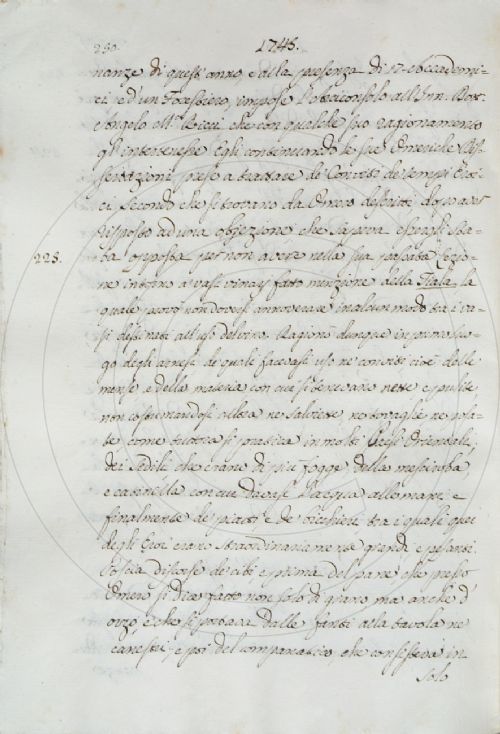 230. 1745.
nanze di quest'anno, e alla presenza di 17. Accademi-
ci, e d'un Forestiero, impose l'Arciconsolo all'Inn. Dott.
Angelo M.ª Ricci che con qualche suo ragionamento
gl'intervenisse. Egli continuando le sue Omeriche Dis-
sertazioni prese a trattare de' Conviti de' tempi Eroi-
ci secondo che si trovano da Omero descritti dopo aver
risposto ad una objezione che sapeva essergli sta-
ta opposta per non avere nella sua passata Lezio-
228. ne intorno a' vasi vinarj fatto menzione della Fiala, la
quale provò non doversi annoverare in alcun modo tra i va-
si destinati all'uso del vino. Ragionò dunque in primo luo-
go degli arnesi de' quali facevasi uso ne' conviti cioè delle
mense, e della materia con cui si tenevano nette e pulite
non costumandosi allora ne salviette ne tovaglie ne
come tuttora si pratica in molti Paesi Orientali,
dei Sedili che erano di più fogge della mesciroba,
e catinella con cui davasi l'acqua alle mani; e
finalmente de' piatti e de' bicchieri tra i quali quei
degli Eroi erano straordinariamente grandi e pesanti.
Poscia discorse de' cibi e prima del pane che presso
Omero si dice fatto non solo di grano ma anche d'
orzo e che si portava dalle fanti alla tavola ne'
canestri; e poi del companatico, che consisteva in
solo